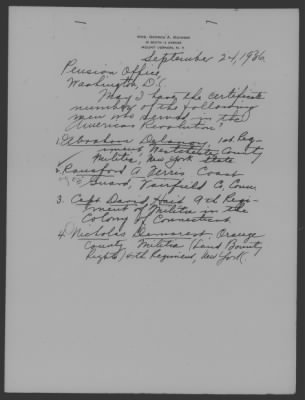 MRS. GEORGE A.
MOUNT VERNON, N. Y.
September 24, 1936.
Pension Office,
Washington, D.C.
May I have the certificate
number of the following
men who served in the
American Revolution?
1. Abraham 1st Reg-
iment Westchester County
Militia, New York State
2. Ransford A. Ferris Coast
Guard, Fairfield Co, Conn.
3. Capt. David 9th Regi-
ment of Militia in the
Colony of Connecticut
4. Nicholas Demarest Orange
County Militia (Land Bounty
Rights) 4th Regiment, New York.